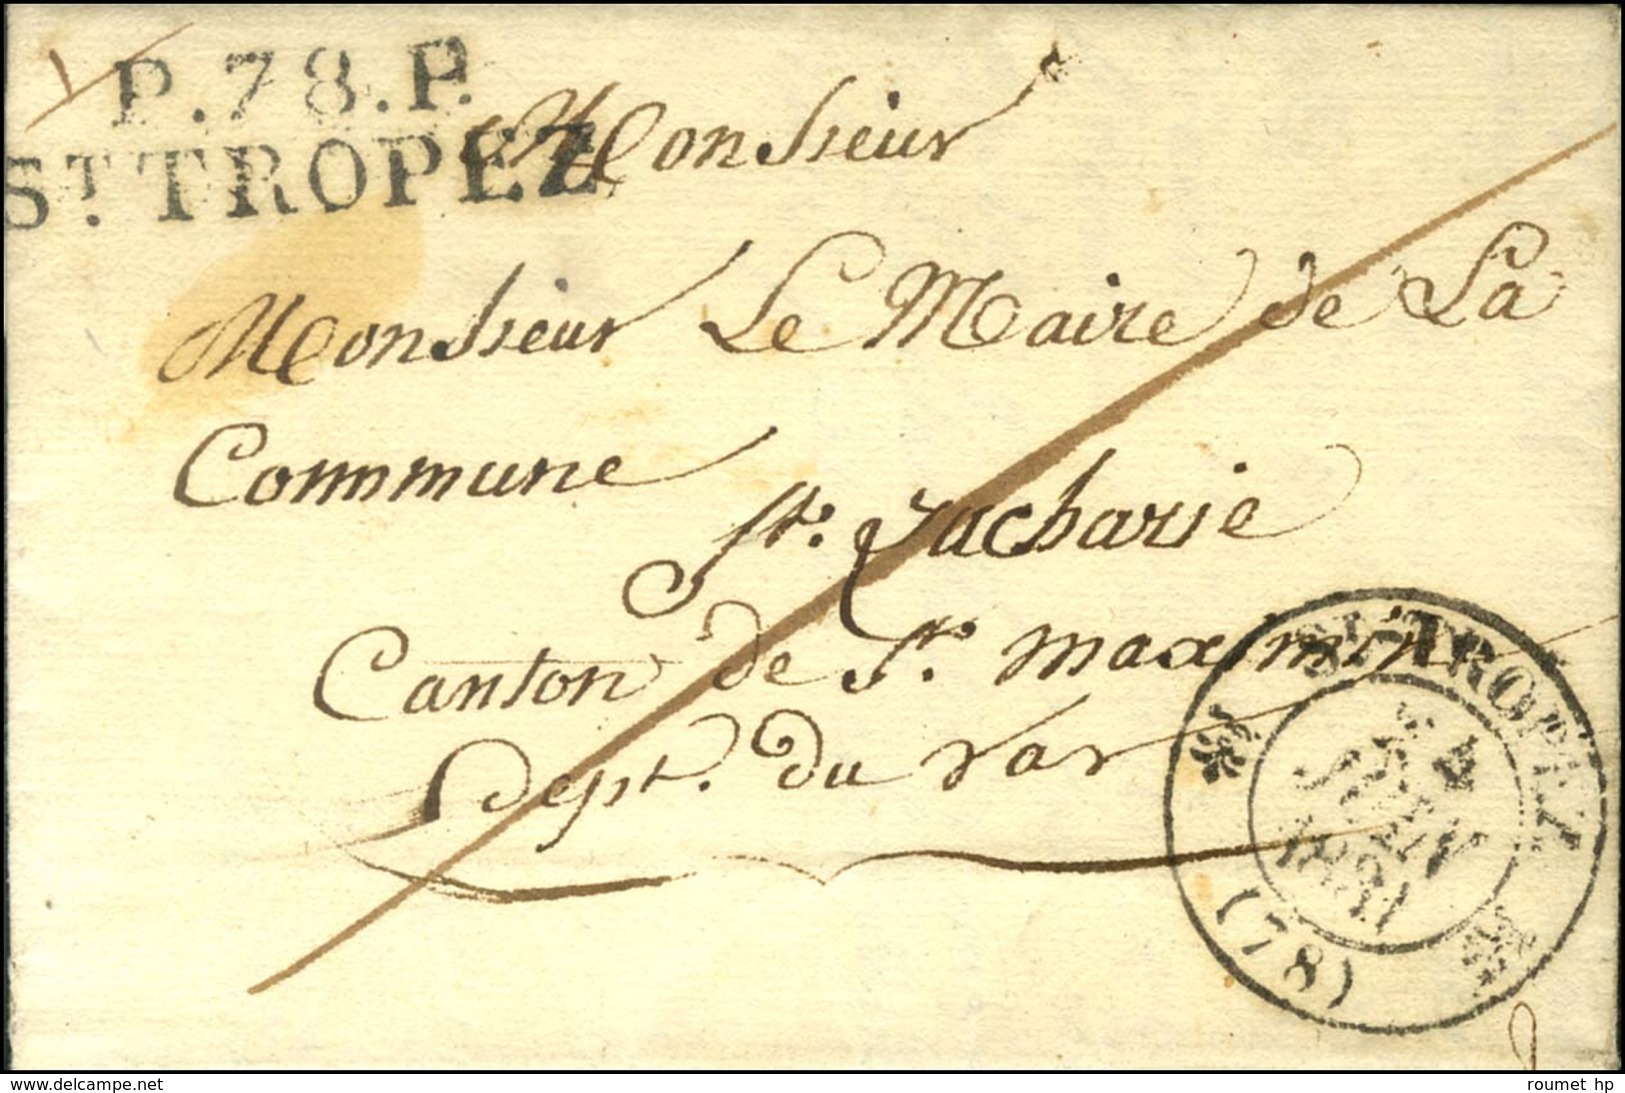 P.78.P.
ST. TROPEZ
Monsieur
Monsieur Le Maire de La
Commune
St. Zacharie
Canton de St. maximin
Dept. du var
ST. TROPEZ
24
JUIN
(78)
www.delcampe.net
roumet hp